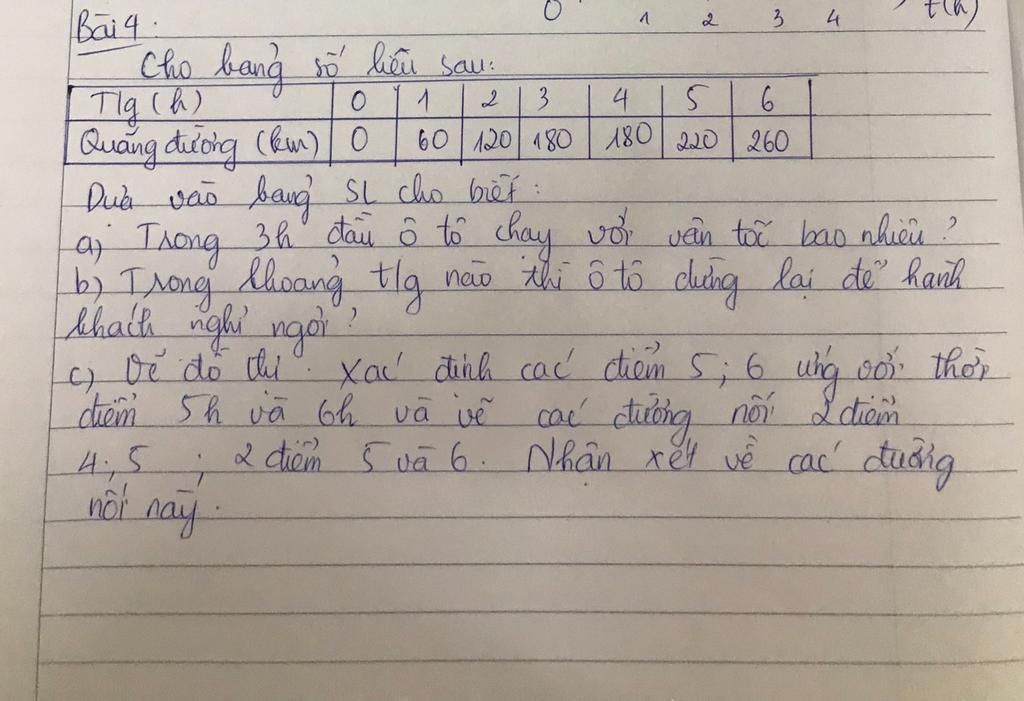 0 1 2 3 4 t(h)
Bài 4:
Cho bảng số liệu sau:
T/g (h) 0 1 2 3 4 5 6
Quãng đường (km) 0 60 120 180 180 220 260
Dựa vào bảng SL cho biết:
a) Trong 3h đầu ô tô chạy với vận tốc bao nhiêu?
b) Trong khoảng t/g nào thì ô tô dừng lại để hành
khách nghỉ ngơi?
c) Vẽ đồ thị. Xác định các điểm 5; 6 ứng với thời
điểm 5h và 6h và vẽ các đường nối 2 điểm
4; 5 ; 2 điểm 5 và 6. Nhận xét về các đường
nối này.